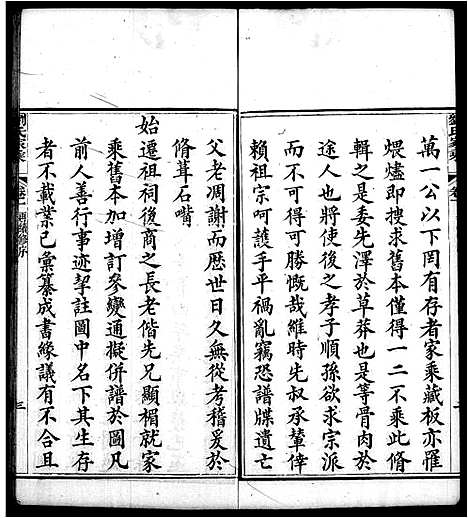 萬一公以下罔有存者家乘藏板亦罹
煨燼即搜求舊本僅得一二不乘此脩
輯之是委先澤於草莽也是等骨肉於
途人也將使後之孝子順孫欲求宗派
而不可得可勝慨哉維時先叔承輦倖
賴祖宗呵護手平禍亂竊恐譜牒遺亡
父老凋謝而歷世日久無從考稽爰於
脩葺石嘴
始遷祖祠後商之長老偕先兄顯楣就家
乘舊本加增訂參變通擬併譜於圖凡
前人善行事迹挈註圖中名下其生存
者不載業已彙纂成書緣議有不合且
劉氏家乘
卷一
三